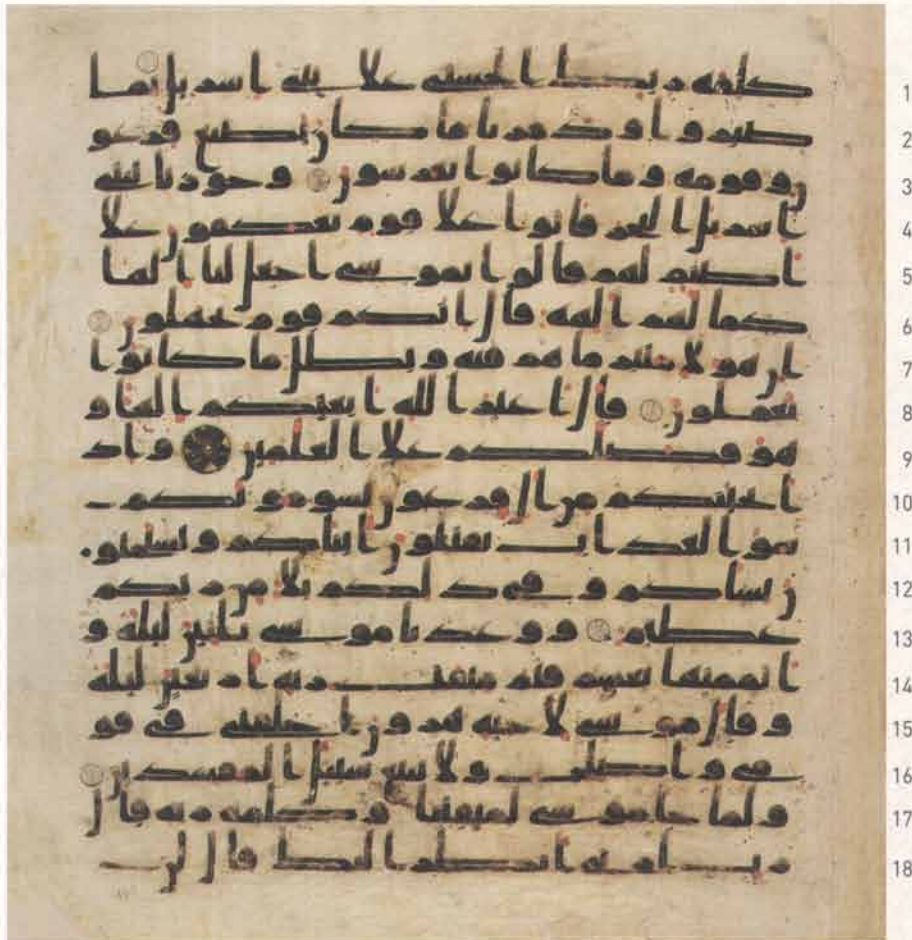 كلمه ربك الحسنى علا بنى اسريل بما 1
صبروا ودمرنا ما كان يصنع فرعو 2
ن وقومه وما كانوا يعرشون وجوزنا ببنى 3
اسريل البحر فاتوا علا قوم يعكفون علا 4
اصنم لهم قالوا يموسى اجعل لنا الها 5
كما لهم الهه قال انكم قوم تجهلون 6
ان هولا متبر ما هم فيه وبطل ما كانوا 7
يعملون قال اغير الله ابغيكم الها و 8
هو فضلكم علا العلمين واذ 9
انجينكم من ال فرعون يسومونكم 10
سو العذاب يقتلون ابناكم ويستحيو 11
ن نساكم وفى ذلكم بلا من ربكم 12
عظيم ووعدنا موسى ثلثين ليله و 13
اتممنها بعشر فتم ميقت ربه اربعين ليله 14
وقال موسى لاخيه هرون اخلفنى فى قو 15
مى واصلح ولا تتبع سبيل المفسدين 16
ولما جا موسى لميقتنا وكلمه ربه قال 17
رب ارنى انظر اليك قال لن 18